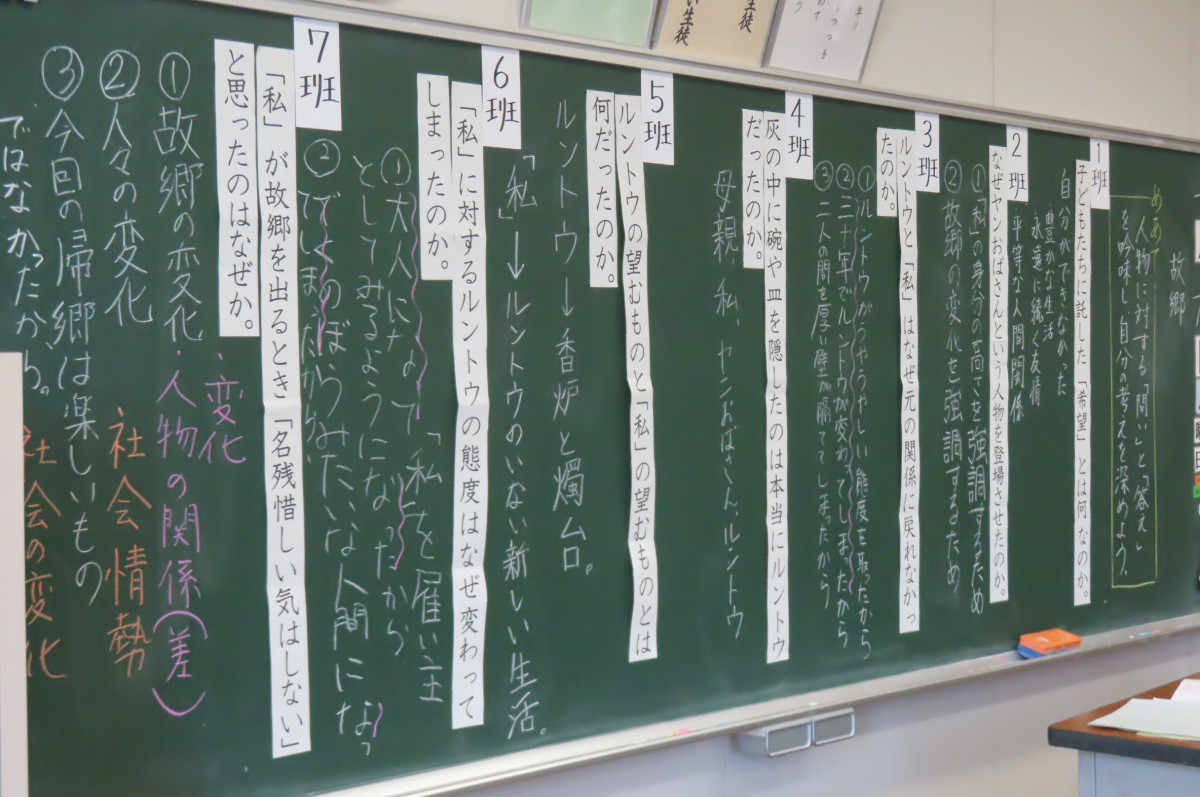 故郷
めあて
人物に対する「問い」と「答え」
を吟味し、自分の考えを深めよう。
1班
子どもたちに託した「希望」とは何なのか。
自分ができなかった
豊かな生活
永遠に続く友情
平等な人間関係
2班
なぜヤンおばさんという人物を登場させたのか。
①「私」の身分の高さを強調するため
②故郷の変化を強調するため
3班
ルントウと「私」はなぜ元の関係に戻れなかっ
たのか。
①ルントウがうやうやしい態度を取ったから
②三十年でルントウが変わってしまったから
③二人の間を厚い壁が隔ててしまったから
4班
灰の中に碗や皿を隠したのは本当にルントウ
だったのか。
母親、私、ヤンおばさん、ルントウ
5班
ルントウの望むものと「私」の望むものとは
何だったのか。
ルントウ→香炉と燭台。
「私」→ルントウのいない新しい生活。
6班
「私」に対するルントウの態度はなぜ変わって
しまったのか。
①大人になって「私」を雇い主
としてみるようになったから
②でくのぼうみたいな人間になっ
てしまったから
7班
「私」が故郷を出るとき「名残惜しい気はしない」
と思ったのはなぜか。
①故郷の変化
・変化
・人物の関係(差)
②人々の変化
社会情勢
③今回の帰郷は楽しいもの
ではなかったから。
社会の変化